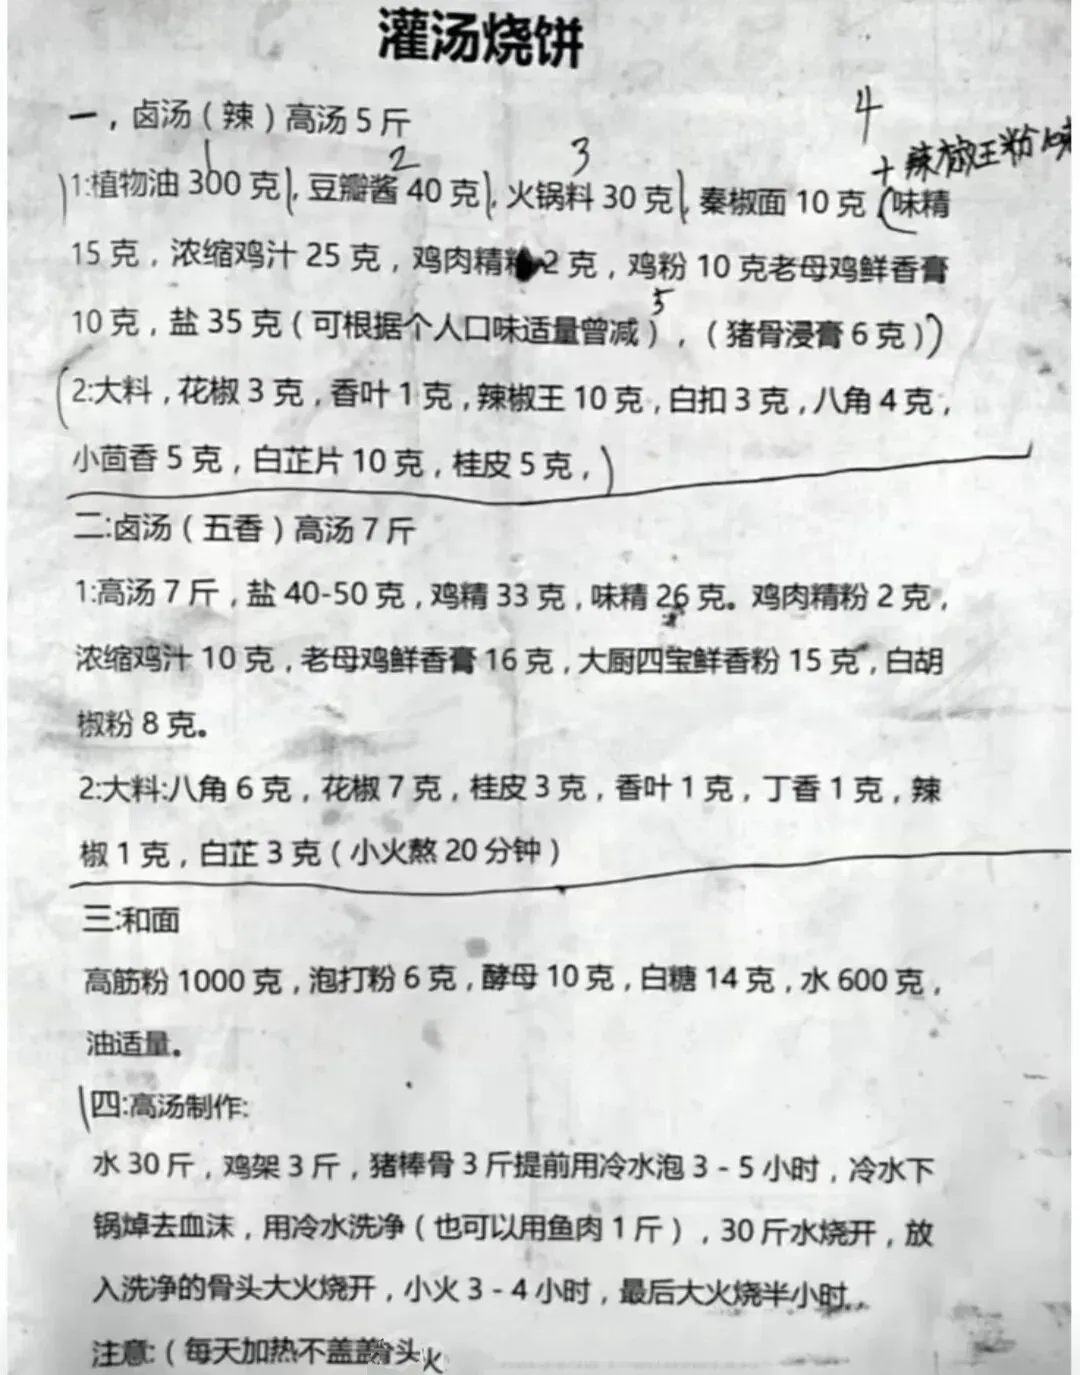 灌汤烧饼
4
一，卤汤（辣）高汤5斤
+辣椒王粉
1 2 3
1:植物油 300 克，豆瓣酱 40 克，火锅料 30 克，秦椒面 10 克（味精
15 克，浓缩鸡汁 25 克，鸡肉精 2 克，鸡粉 10 克老母鸡鲜香膏
5
10 克，盐 35 克（可根据个人口味适量曾减），（猪骨浸膏 6 克））
（2:大料，花椒 3 克，香叶 1 克，辣椒王 10 克，白扣 3 克，八角 4 克，
小茴香 5 克，白芷片 10 克，桂皮 5 克，）
二:卤汤（五香）高汤 7 斤
1:高汤 7 斤，盐 40-50 克，鸡精 33 克，味精 26 克。鸡肉精粉 2 克，
浓缩鸡汁 10 克，老母鸡鲜香膏 16 克，大厨四宝鲜香粉 15 克，白胡
椒粉 8 克。
2:大料:八角 6 克，花椒 7 克，桂皮 3 克，香叶 1 克，丁香 1 克，辣
椒 1 克，白芷 3 克（小火熬 20 分钟）
三:和面
高筋粉 1000 克，泡打粉 6 克，酵母 10 克，白糖 14 克，水 600 克，
油适量。
四:高汤制作:
水 30 斤，鸡架 3 斤，猪棒骨 3 斤提前用冷水泡 3 - 5 小时，冷水下
锅焯去血沫，用冷水洗净（也可以用鱼肉 1 斤），30 斤水烧开，放
入洗净的骨头大火烧开，小火 3 - 4 小时，最后大火烧半小时
注意:（每天加热不盖盖骨头火